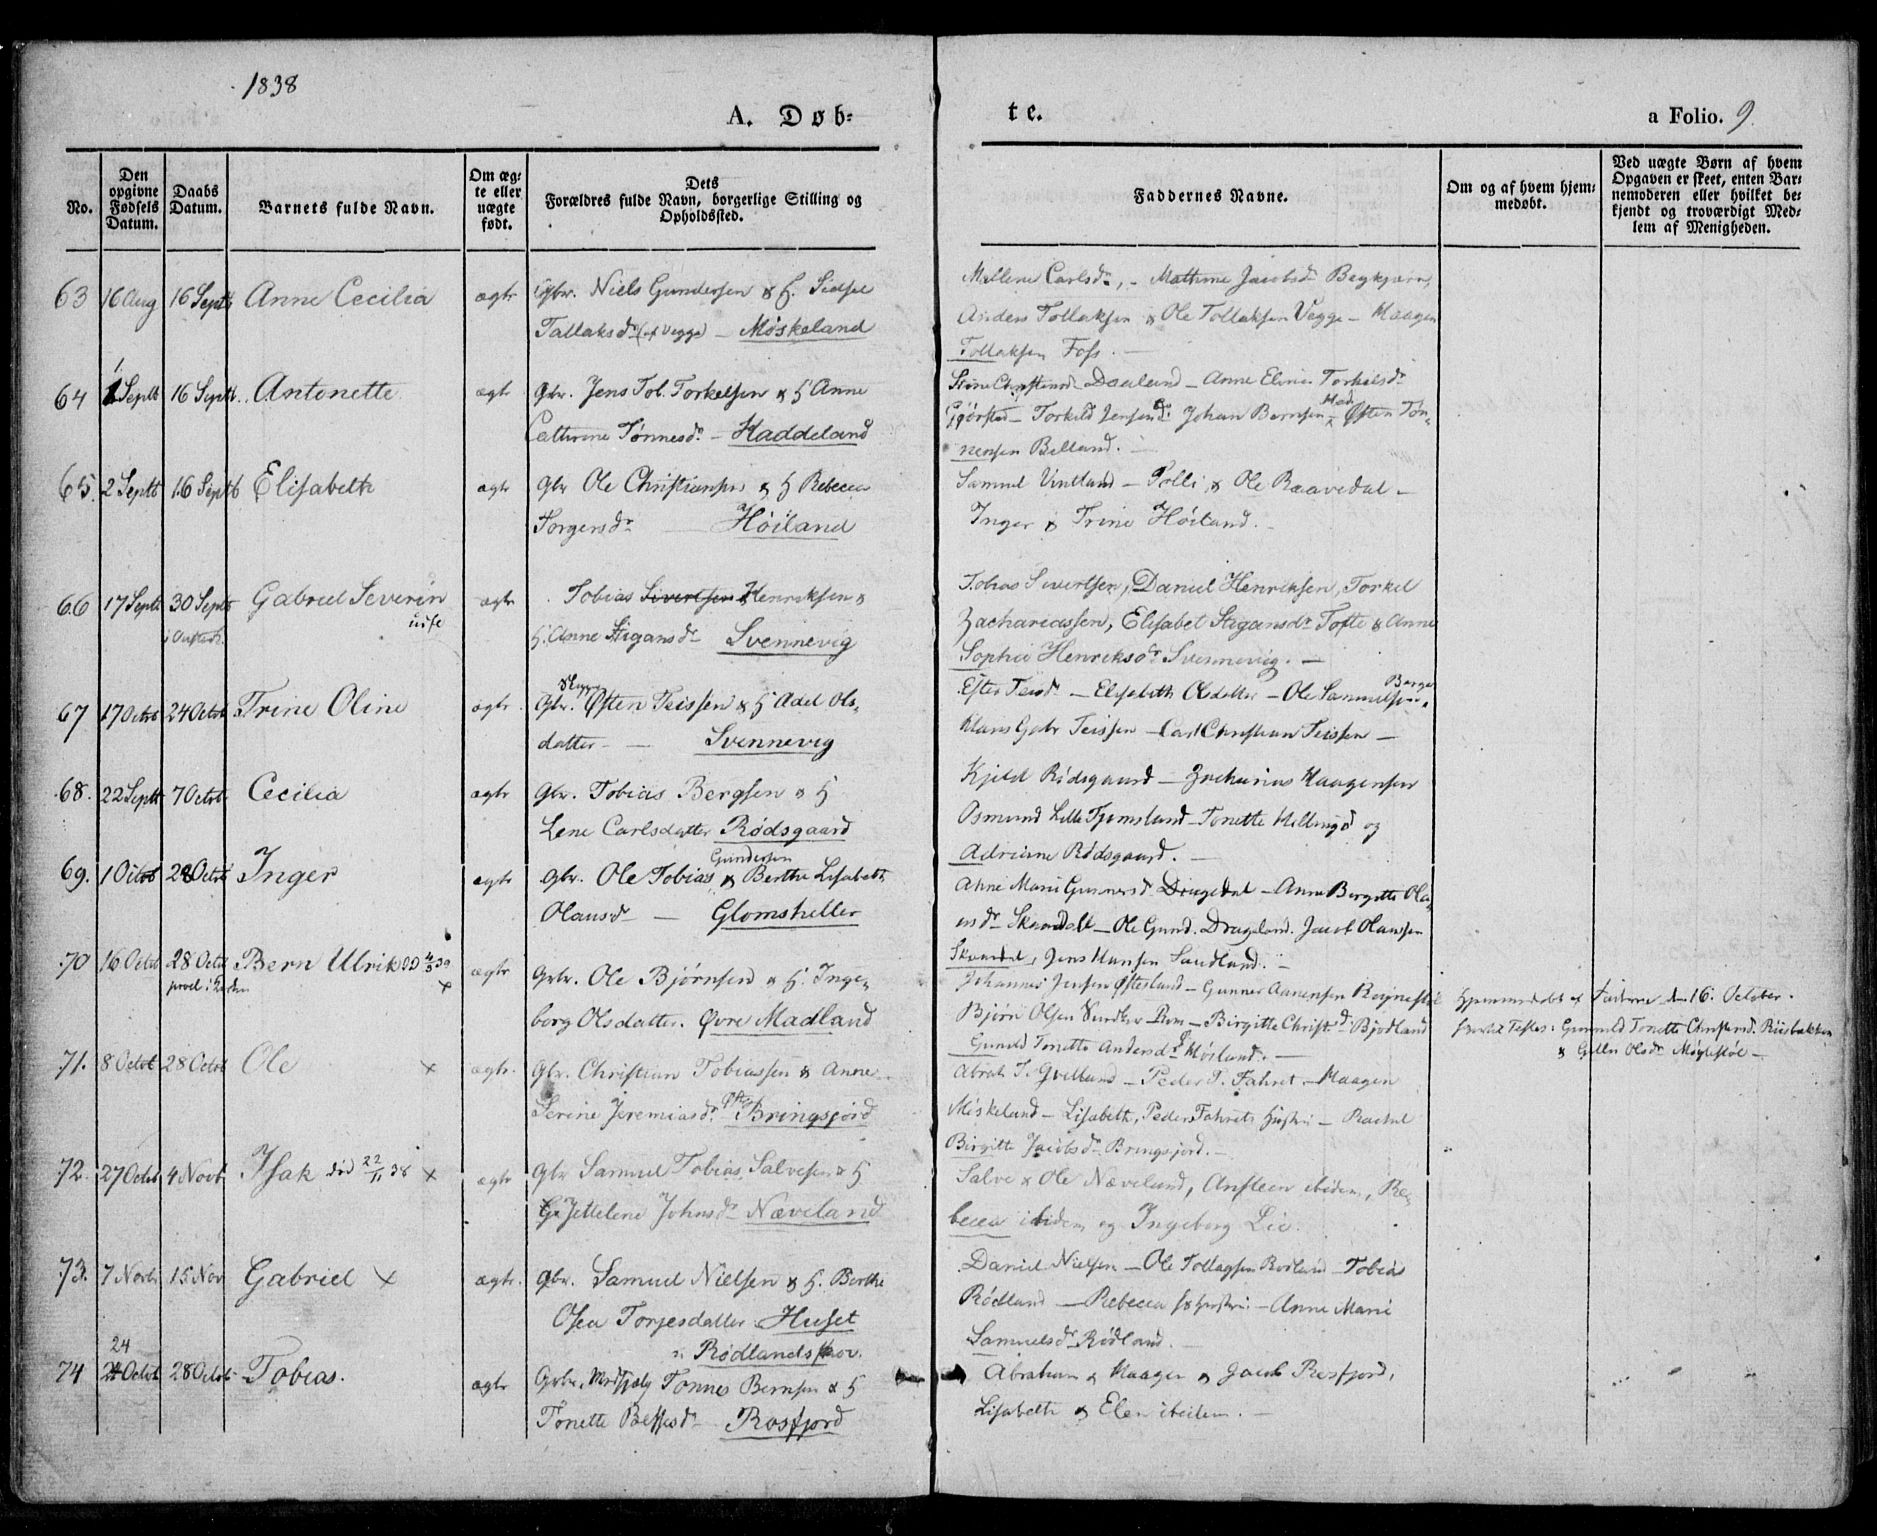 1838
A. Døb=
te.
a Folio. 9
No.
Den opgivne Fødsels Datum.
Daabs Datum.
Barnets fulde Navn.
Om æg=
te eller
uægte
født.
Dets
Forældres fulde Navn, borgerlige Stilling og
Opholdssted.
Faddernes Navne.
Om og af hvem hjem=
medøbt.
Ved uægte Børn af hvem
Opgaven er skeet, enten Bar=
nemoderen eller hvilket be=
kjendt og troværdigt Med=
lem af Menigheden.
63 16 Aug 16 Septb Anne Cecilia ægte Gbr. Niels Gundersen & H. Sidsel
Tallaksdr (af Vegge) — Møskeland
Mallene Carlsdr, — Mathine Jacobsdr
Anders Tollaksen & Ole Tollaksen Vegge — Haagen
Tollaksen Foss. —
64 1 Septb 16 Septb. Antonette ægte Gbr. Jens Tob. Torkelsen & H Anne
Cathrine Tønnesdr — Haddeland
Daleland — Anne Eline Torkelsdr
Torkild Jensen Johan Bernsen Had. Østen Tøn-
nensen Belland. —
65. 2 Septb 16 Septb Elisabeth ægte Gbr Ole Christiansen & H Rebecca
Torgersdr — Høiland
Samuel Vintland — Tolli & Ole Raavedal —
Inger & Trine Høiland. —
66 17 Septb 30 Septb Gabriel Severin ægte Tobias Sivertsen Henriksen &
H. Anne Stigansdr Svennevig
Tobias Sivertsen, Daniel Henriksen, Torkel
Zachariassen, Elisabet Stigansdr Tofte & Anne
Sophie Henriksdr Svennevig. —
67 17 Octob 24 Octob Trine Oline ægte. Gbr. Østen Teissen & H Adel Ols-
datter — Svennevig
Ester Teisdr — Elisabeth Olsdatter — Ole Samuelsen
Klaus Gabr Teissen — Carl Christian Teissen —
68. 22 Septb 7 Octob. Cecilia ægte Gbr. Tobias Bergsen & H
Lene Carlsdatter Rødsgaard
Kjeld Rødsgaard — Zacharias Haagensen
Osmund Lille Tjomsland — Tonette og
Adriane Rødsgaard. —
69. 1 Octob 28 Octob Inger ægte Gbr. Ole Tobias Gundersen & Berthe Lisabeth
Olausdr — Glomsheller
Anne Marie Gunnersdr — Anne Birgitte Ola-
usdr Skaandal — Ole Gund. Drageland. Jacob Olaussen
Skaandal, Jens Hansen Sandland. —
70 16 Octob 28 Octob Bern Ulrik ægte Gbr. Ole Bjørnsen & H. Inge-
borg Olsdatter. Øvre Madland
Johannes Jensen Øftesland — Gunner Aanensen
Bjørn Olsen — Birgitte Christ.dr Bjodland
Gunild Tonette Andersdr Møsland. —
Hjemmedøbt af Faderen den 16. October.
Testes: Gunuld Tonette Christensdr.
& Olsdr —
71. 8 Octob 28 Octob Ole × ægte. Gbr. Christian Tobiassen & Anne
Serine Jeremiasdr. Bringsjord
Abrah. T. — Peder T. Fahret. — Haagen
Møskeland — Lisabeth, Peder Fahrets Hustru — Rachel
Birgitte Jacobsdr Bringsjord. —
72. 27 Octob 4 Novb Isak død 22/11 38 × ægte Gbr Samuel Tobias Salvesen & H
Jettelene Johnsdr Næveland
Salve & Ole Næveland, Ansteen ibidem, Re-
becca ibidem og Ingeborg Lie.
73. 7 Novb 15 Nov Gabriel × ægte. Gbr. Samuel Nielsen & H. Berthe
Osea Torjesdatter Huset
i Rødlandsskov.
Daniel Nielsen — Ole Tollagsen Rødland — Tobias
Rødland — Rebecca hs Hustru — Anne Marie
Samuelsdr Rødland. —
74 24 Octob 28 Octob. Tobias. ægte Tønnes Bernsen & H
Tonette — Rosfjord
Abraham & Haagen & Jacob Rosfjord,
Lisabeth & Elen ibidem. —